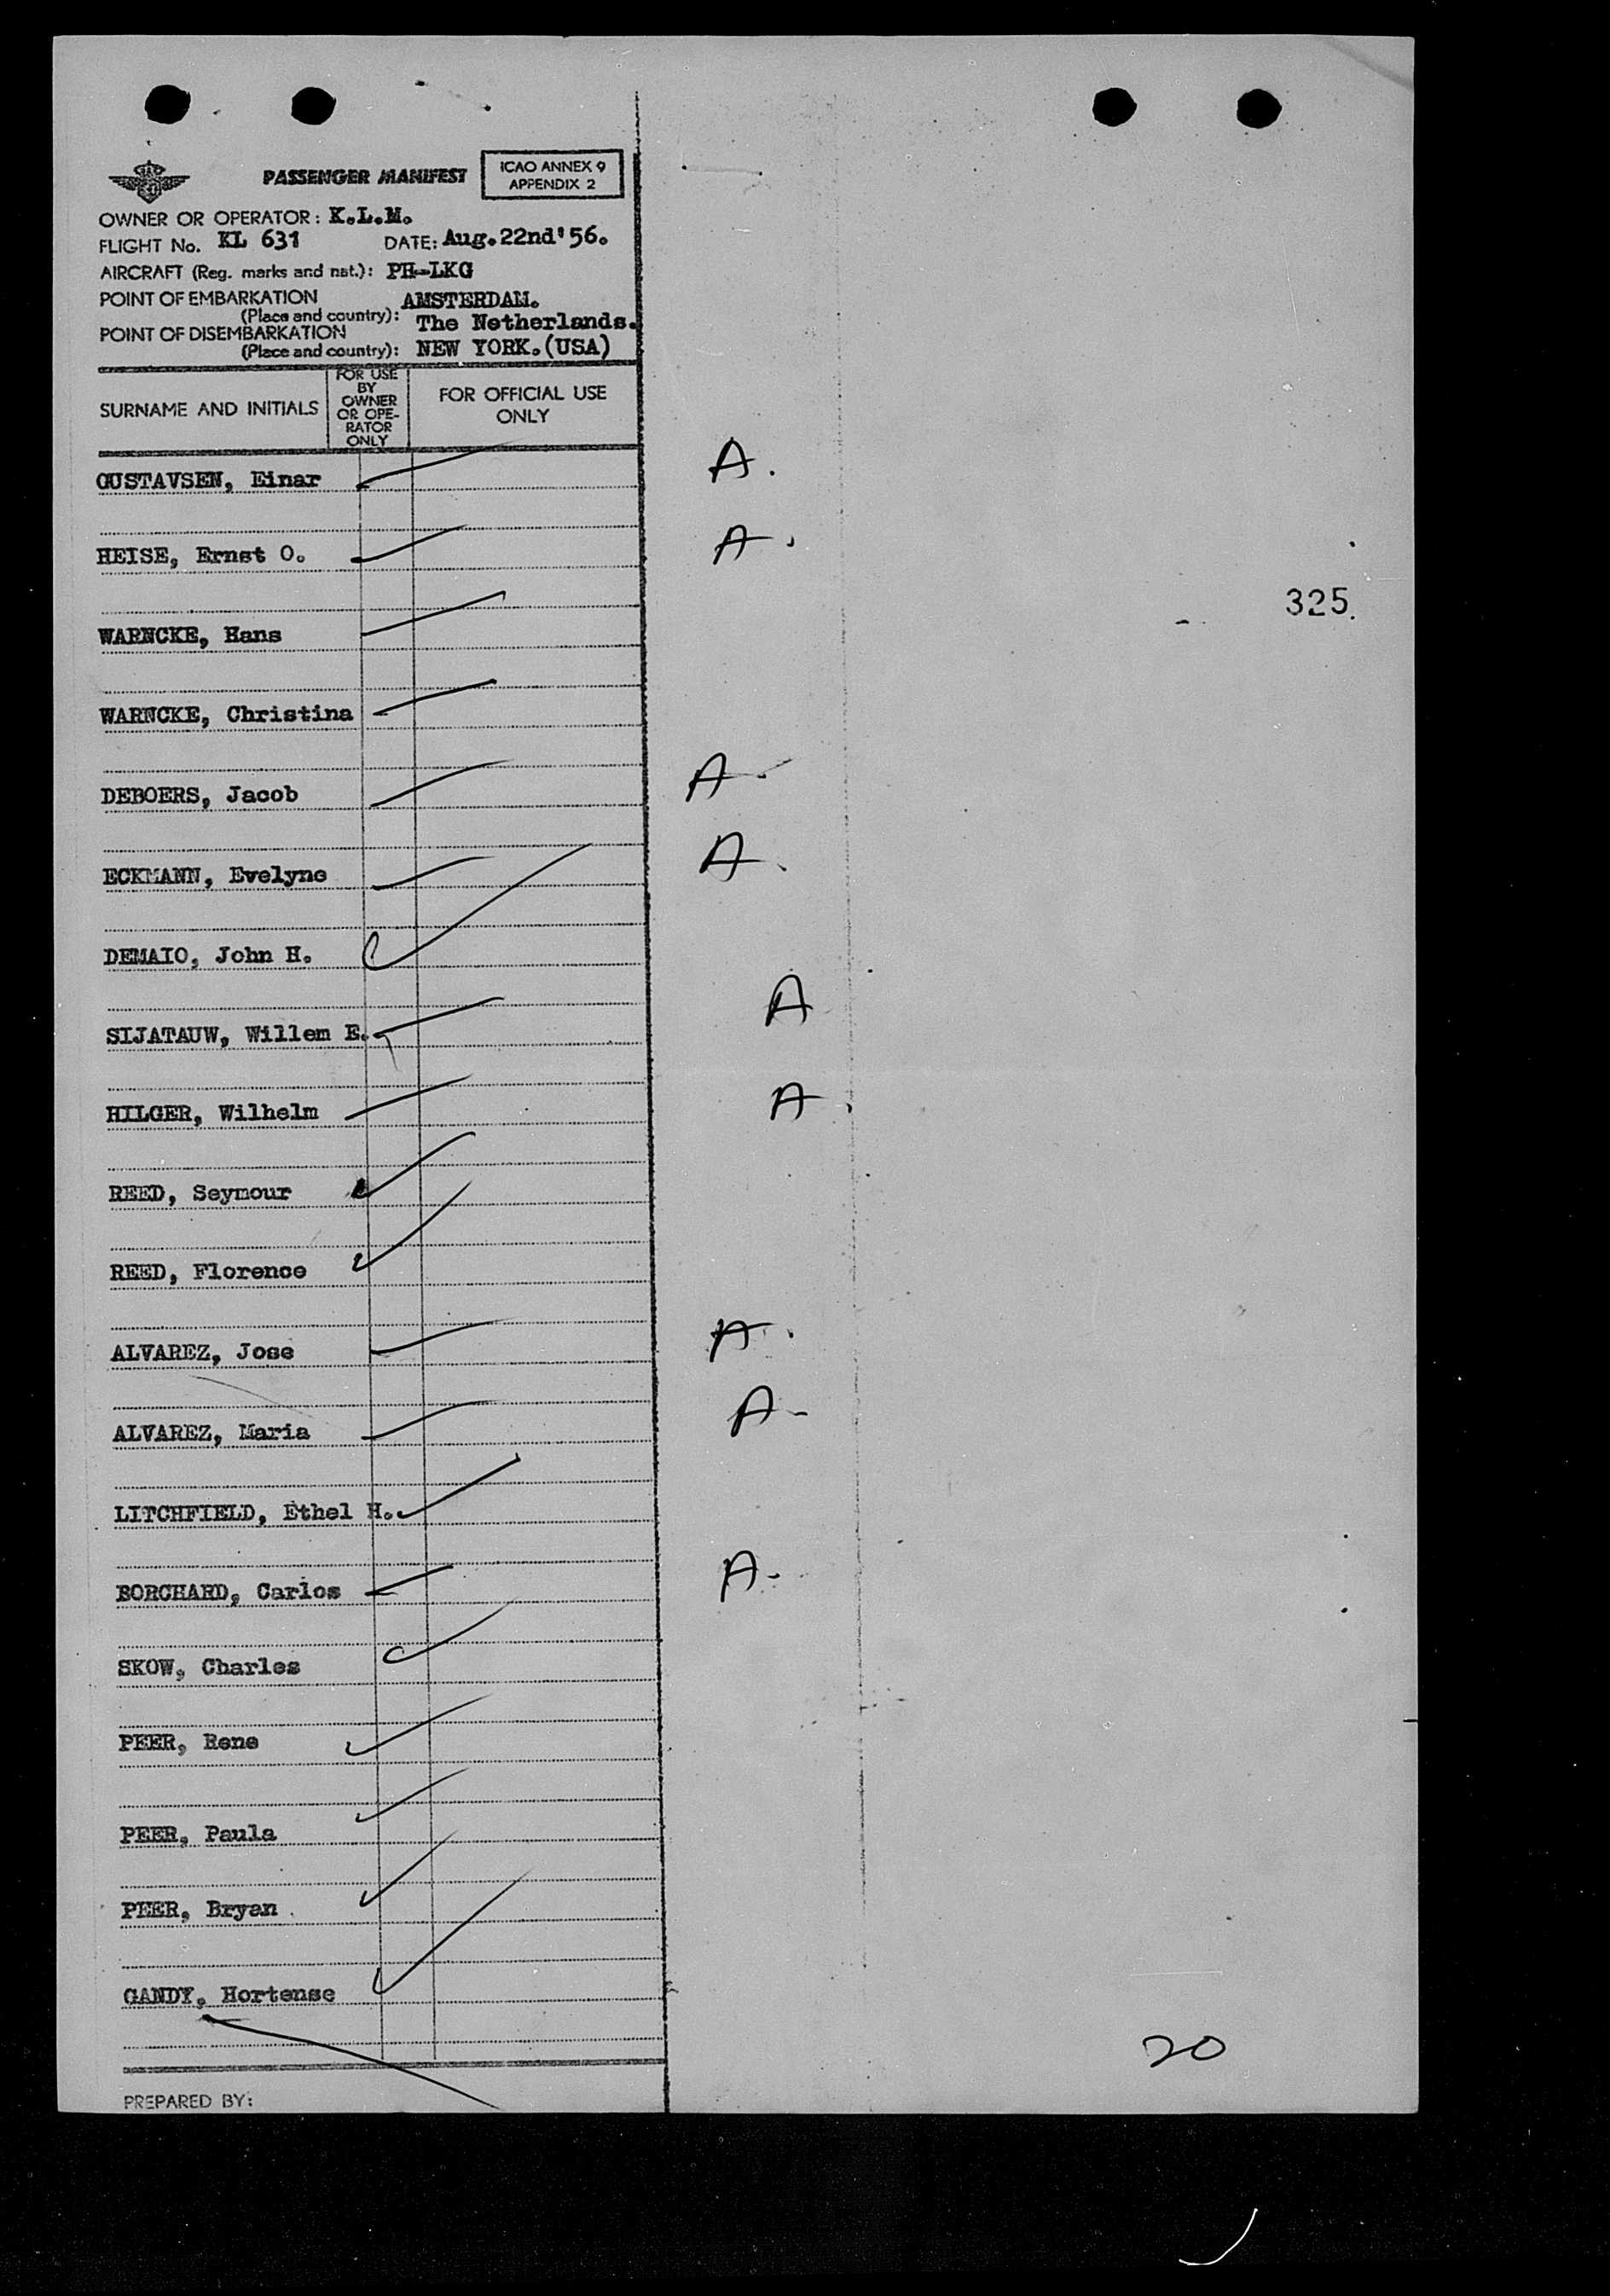 PASSENGER MANIFEST
ICAO ANNEX 9
APPENDIX 2
OWNER OR OPERATOR: K.L.M.
FLIGHT No. KL 631 DATE: Aug.22nd'56.
AIRCRAFT (Reg. marks and nat.): PH-LKG
POINT OF EMBARKATION
(Place and country): AMSTERDAM.
The Netherlands.
POINT OF DISEMBARKATION
(Place and country): NEW YORK.(USA)
SURNAME AND INITIALS
FOR USE
BY
OWNER
OR OPE-
RATOR
ONLY
FOR OFFICIAL USE
ONLY
GUSTAVSEN, Einar A.
HEISE, Ernst O. A.
325
WARNCKE, Hans
WARNCKE, Christina
DEBOERS, Jacob A
ECKMANN, Evelyne A.
DEMAIO, John H.
SIJATAUW, Willem E. A
HILGER, Wilhelm A.
REED, Seymour
REED, Florence
ALVAREZ, Jose A.
ALVAREZ, Maria A-
LITCHFIELD, Ethel H.
BORCHARD, Carlos A-
SKOW, Charles
PEER, Rene
PEER, Paula
PEER, Bryan
GANDY, Hortense
20
PREPARED BY: